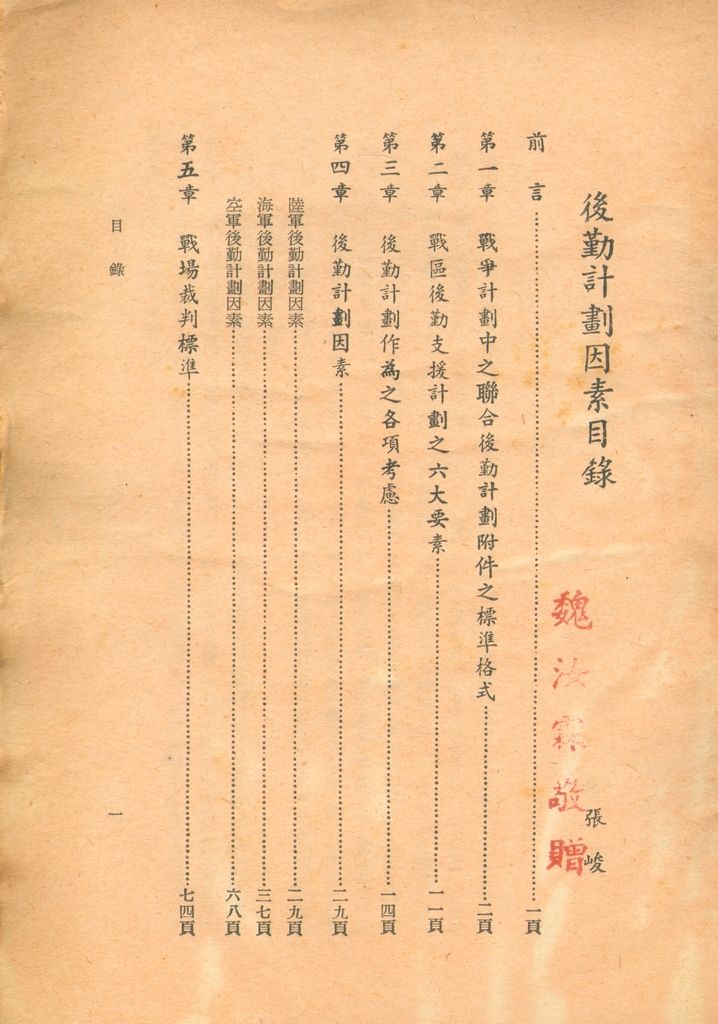 後勤計劃因素目錄
張峻
魏汝霖敬贈
前言 一頁
第一章 戰爭計劃中之聯合後勤計劃附件之標準格式 二頁
第二章 戰區後勤支援計劃之六大要素 一一頁
第三章 後勤計劃作為之各項考慮 一四頁
第四章 後勤計劃因素 二九頁
陸軍後勤計劃因素 二九頁
海軍後勤計劃因素 三七頁
空軍後勤計劃因素 六八頁
第五章 戰場裁判標準 七四頁
目錄
一